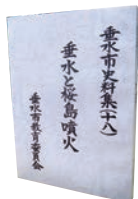 垂水市史料集(十八)
垂水と桜島噴火
垂水市教育委員会